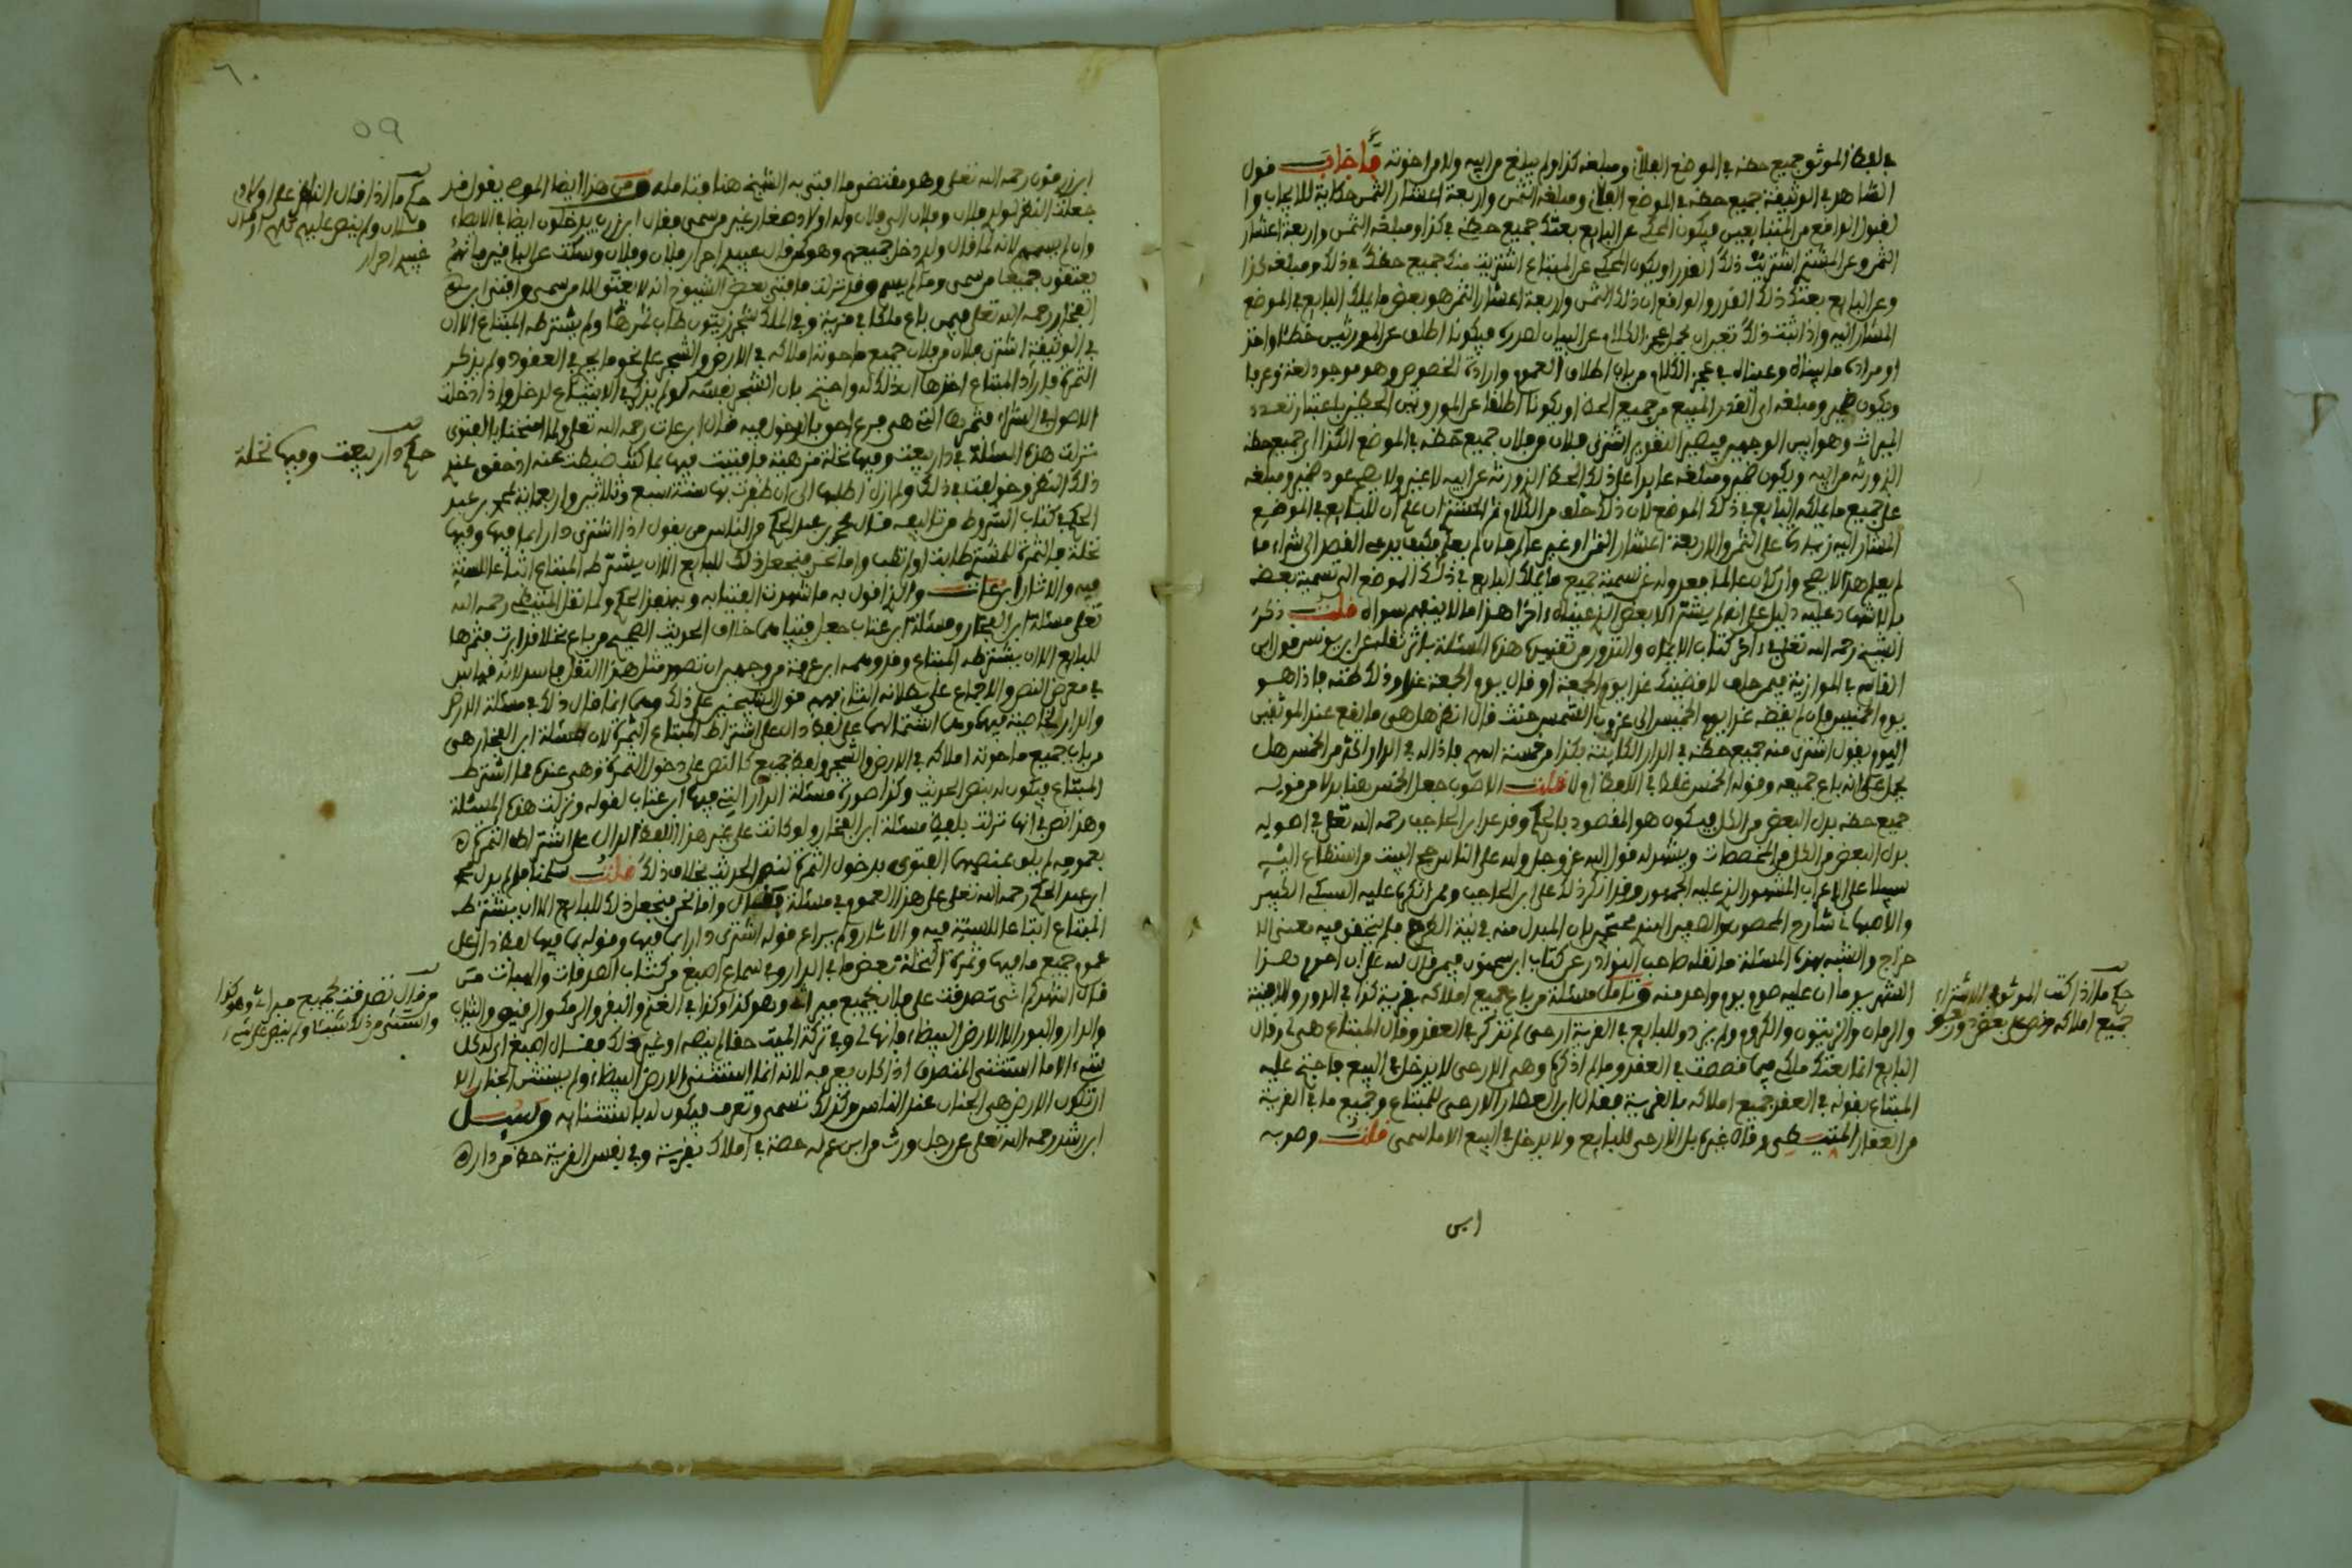 في لفظ الموثق جميع حظه في الموضع الفلاني ومبلغه كذا ولم يبلغ من ابيه ولا من اخوته فاجاب قول
الشاهد في الوثيقة جميع حظه في الموضع الفلاني ومبلغه الثمن واربعة اعشار الثمن حكاية للايجاب وا
لقبول الواقع من المتبايعين فيكون المحكي عن البايع بعتك جميع حظي في كذا ومبلغه الثمن واربعة اعشار
الثمن وعن المشتري اشتريت ذلك القدر او يكون المحكي عن المبتاع اشتريت منك جميع حظك في ذلك ومبلغه كذا
وعن البايع بعتك ذلك القدر والواقع ان ذلك الثمن واربعة اعشار الثمن هو بعض ما يملك البايع في الموضع
المشار اليه واذا ثبت ذلك
او مرادي ما بيناه وعيناه في عجز الكلام من باب اطلاق العموم وارادة الخصوص وهو موجود لغة وعرفا
ويكون ضمير ومبلغه الى القدر المبيع من جميع الحظ او يكونا اطلقا عن الموروثين الحظين باعتبار تعدد
الميراث وهو ابين الوجهين فيصير التقدير اشترى فلان من فلان جميع حظه في الموضع الكذا اي جميع حظه
الذي ورثه من ابيه ويكون ضمير ومبلغه عايدا على ذلك الحظ الذي ورثه عن ابيه لا غير ولا يصح عود ضمير ومبلغه
على جميع ما يملكه البايع في ذلك الموضع لان ذلك خلف من الكلام
المشار اليه زيادة على الثمن والاربعة اعشار الثمن او غير عالم فان لم يعلم فكيف يدعي القصد الى شراء ما
لم يعلم هذا لا يصح وان كان عالما
بالاشهاد عليه دليل على انه لم يشتر الا البعض الذي عيناه اخرا هذا ما لا يفهم سواه قلت ذكر
الشيخ رحمه الله تعالى في اخر كتاب الايمان والنذور من تقييده هذه المسئلة باثر نقله عن ابن يونس قول ابن
القاسم في الموازية فيمن حلف لاقضينك غدا يوم الجمعة او قال يوم الجمعة غدا وذلك ظنه فاذا هو
يوم الخميس فان لم يقضه غدا يوم الخميس الى غروب الشمس حنث قال انظر هل هي ما يقع عند الموثقين
اليوم يقول اشترى منه جميع حظه في الدار الكاينة بكذا من خمسة اسهم فاذا له في الدار اكثر من الخمس هل
يحمل على انه باع جميعه وقوله الخمس غلط في اللفظ او لا قلت الاصوب جعل الخمس هنا بدلا من قوله
جميع حظه بدل البعض من الكل فيكون هو المقصود بالحكم وقد عد ابن الحاجب رحمه الله تعلى في اصوليه
بدل البعض من الكل من المخصصات ويشهد له قول الله عز وجل ولله على الناس حج البيت من استطاع اليه
سبيلا على الاعراب المشهور الذي عليه الجمهور وقد انكر ذلك على ابن الحاجب وممن انكره عليه السبكي الكبير
والاصبهاني شارح المحصول والصفي الهندي محتجين بان المبدل منه في نية الطرح فلم يتحقق فيه معنى الا
خراج والشبه بهذه المسئلة ما نقله صاحب النوادر عن كتاب ابن سحنون فيمن قال لله علي ان اصوم هذا
الشهر يوما ان عليه صوم يوم واحد منه وتامل مسئلة من باع جميع املاكه بقرية كذا في الدور والافنية
والرمان والزيتون والكروم ولم يزد وللبايع في القرية ارحى لم تذكر في العقد وقال المبتاع هي لي وقال
البايع انما بعتك ملكي فيما قصصت في العقد وما لم اذكره وهي الارحى لا يدخل في البيع فاحتج عليه
المبتاع بقوله في العقد جميع املاكه بالقرية فقال ابن العطار الارحى للمبتاع وجميع ما في القرية
من العقار المتيطي وقال غيره بل الارحى للبايع ولا يدخل في البيع الا ما سمى قلت وصوبه
ابن
حكم ما اذا كتب الموثق في الاشتراء
جميع املاكه ونص على بعض دون بعض
٦٠
٥٩
ابن زرقون رحمه الله تعلى وهو مقتضى ما افتى به الشيخ هنا فتامله ومن هذا ايضا الموصي يقول قد
جعلت النظر لولدي فلان وفلان الى فلان وله اولاد صغار غير من سمى فقال ابن زرب يدخلون ايضا في الايصاء
وان لم يسمهم لانه لما قال ولدي دخل جميعهم وهو كمن قال عبيدي احرار فلان وفلان وسكت عن الباقين فانهم
يعتقون جميعا من سمى ومن لم يسم وقد نزلت فافتى بعض الشيوخ انه لا يعتق الا من سمى وافتى ابن
الفخار رحمه الله تعلى فيمن باع ملكا في قرية وفي الملك شجر زيتون طاب ثمرها ولم يشترطه المبتاع الا ان
في الوثيقة اشترى فلان من فلان جميع ما حوته املاكه في الارض والشجر على نحو ما يجري في العقود ولم يذكر
الثمرة فاراد المبتاع اخذها ان ذلك له واحتج بان الشجر نفسه لو لم يذكر في الابتياع لدخل واذا دخلت
الاصول في الشراء فثمرتها التي هي فرع احق بالدخول فيه قال ابن عتاب رحمه الله تعلى ولما امتحنا بالفتوى
نزلت هذه المسئلة في دار بيعت وفيها نخلة مزهية فافتيت فيها بما كنت ضبطت عنه
ذلك النظر وخولفت في ذلك ولم ازل اطلبها الى ان ظفرت بها سنة سبع وثلاثين واربعماية لمحمد بن عبد
الحكم في كتاب الشروط من تاليفه قال محمد بن عبد الحكم ومن الناس من يقول اذا اشترى دارا بما فيها وفيها
نخلة فالثمرة للمشتري طابت او لم تطب واما نحن فنجعل ذلك للبايع الا ان يشترطه المبتاع اتباعا للسنة
فيه والاثار ابن عتاب والذي اقول به ما شهدت الفتيا به وبه نفذ الحكم ولما نقل المتيطي رحمه الله
تعلى مسئلة ابن الفخار ومسئلة ابن عتاب جعل فتياهما خلاف الحديث الصحيح من باع نخلا قد ابرت فثمرها
للبايع الا ان يشترطه المبتاع
في معرض النص والاجماع على بطلانه
والدار الخاصة فيهما وهما اشتمالهما على لفظ دال على اشتراط المبتاع الثمرة لان مسئلة ابن الفخار هي
من باب جميع ما حوته املاكه في الارض والشجر ولفظ جميع كالنص على دخول الثمرة وهي عنده مما اشترطه
المبتاع فيكون له بنص الحديث وكذا صورة مسئلة الدار التي فيها ابن عتاب لقوله ونزلت هذه المسئلة
وهذا نص في انها نزلت بلفظ مسئلة ابن الفخار ولو كانت على غير هذا اللفظ الدال على اشتراطه الثمرة
بعمومه لم يلق بمنصبهما الفتوى بدخول الثمرة لنص الحديث بخلاف ذلك قلت
ابن عبد الحكم رحمه الله تعلى على هذا العموم في مسئلة وقال واما نحن فنجعل ذلك للبايع الا ان يشترطه
المبتاع اتباعا للسنة فيه والاثار ولم يراع قوله اشترى دارا بما فيها وقوله بما فيها لفظ دال على
عموم جميع ما فيها وثمرة النخلة بعض ما في الدار وفي سماع اصبغ من كتاب الصدقات والهبات من
قال اشهدكم اني تصدقت على فلان بجميع ميراثي وهو كذا وكذا في الغنم والبقر والرمك والرقيق والثياب
والدار والبور الا الارض البيضاء فانها لي وفي تركة الميت حقا لم ينصه او غير ذلك فقال اصبغ ارى له كل
شيء الا ما استثنى المتصدق اذا كان يعرفه لانه انما استثنى الارض البيضاء ولم يستثن الجنان الا
ان تكون الارض هي الجنان عند الناس وكذلك تسمى وتعرف فيكون له باستثنائه وسيل
ابن رشد رحمه الله تعلى عن رجل ورث من ابن عم له حصة في املاك بقرية وفي نفس القرية حظ من دار
حكم ما اذا قال النظر على اولادي
فلان ولم ينص عليهم كلهم او قال
عبيدي احرار
حكم دار بيعت وفيها نخلة
من قال تصدقت بجميع ميراثي وهو كذا
واستثنى من ذلك شيئا ولم ينص على شيء